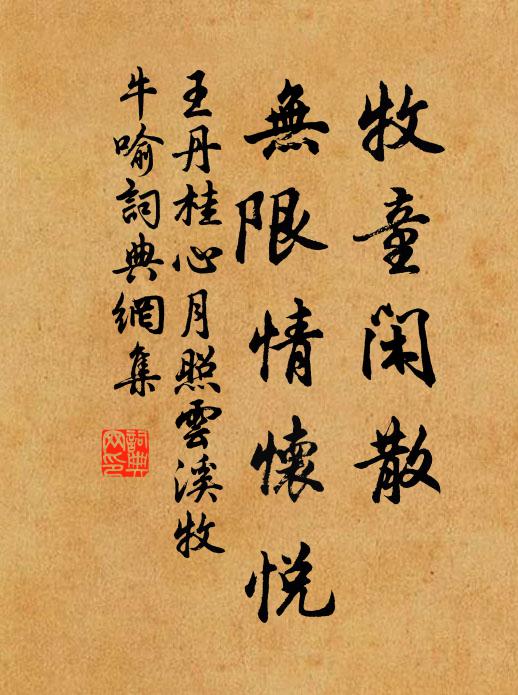 牧童閑散
無限情懷悅
王丹桂心月照雲溪牧
牛喻詞典網集
詞典
网印